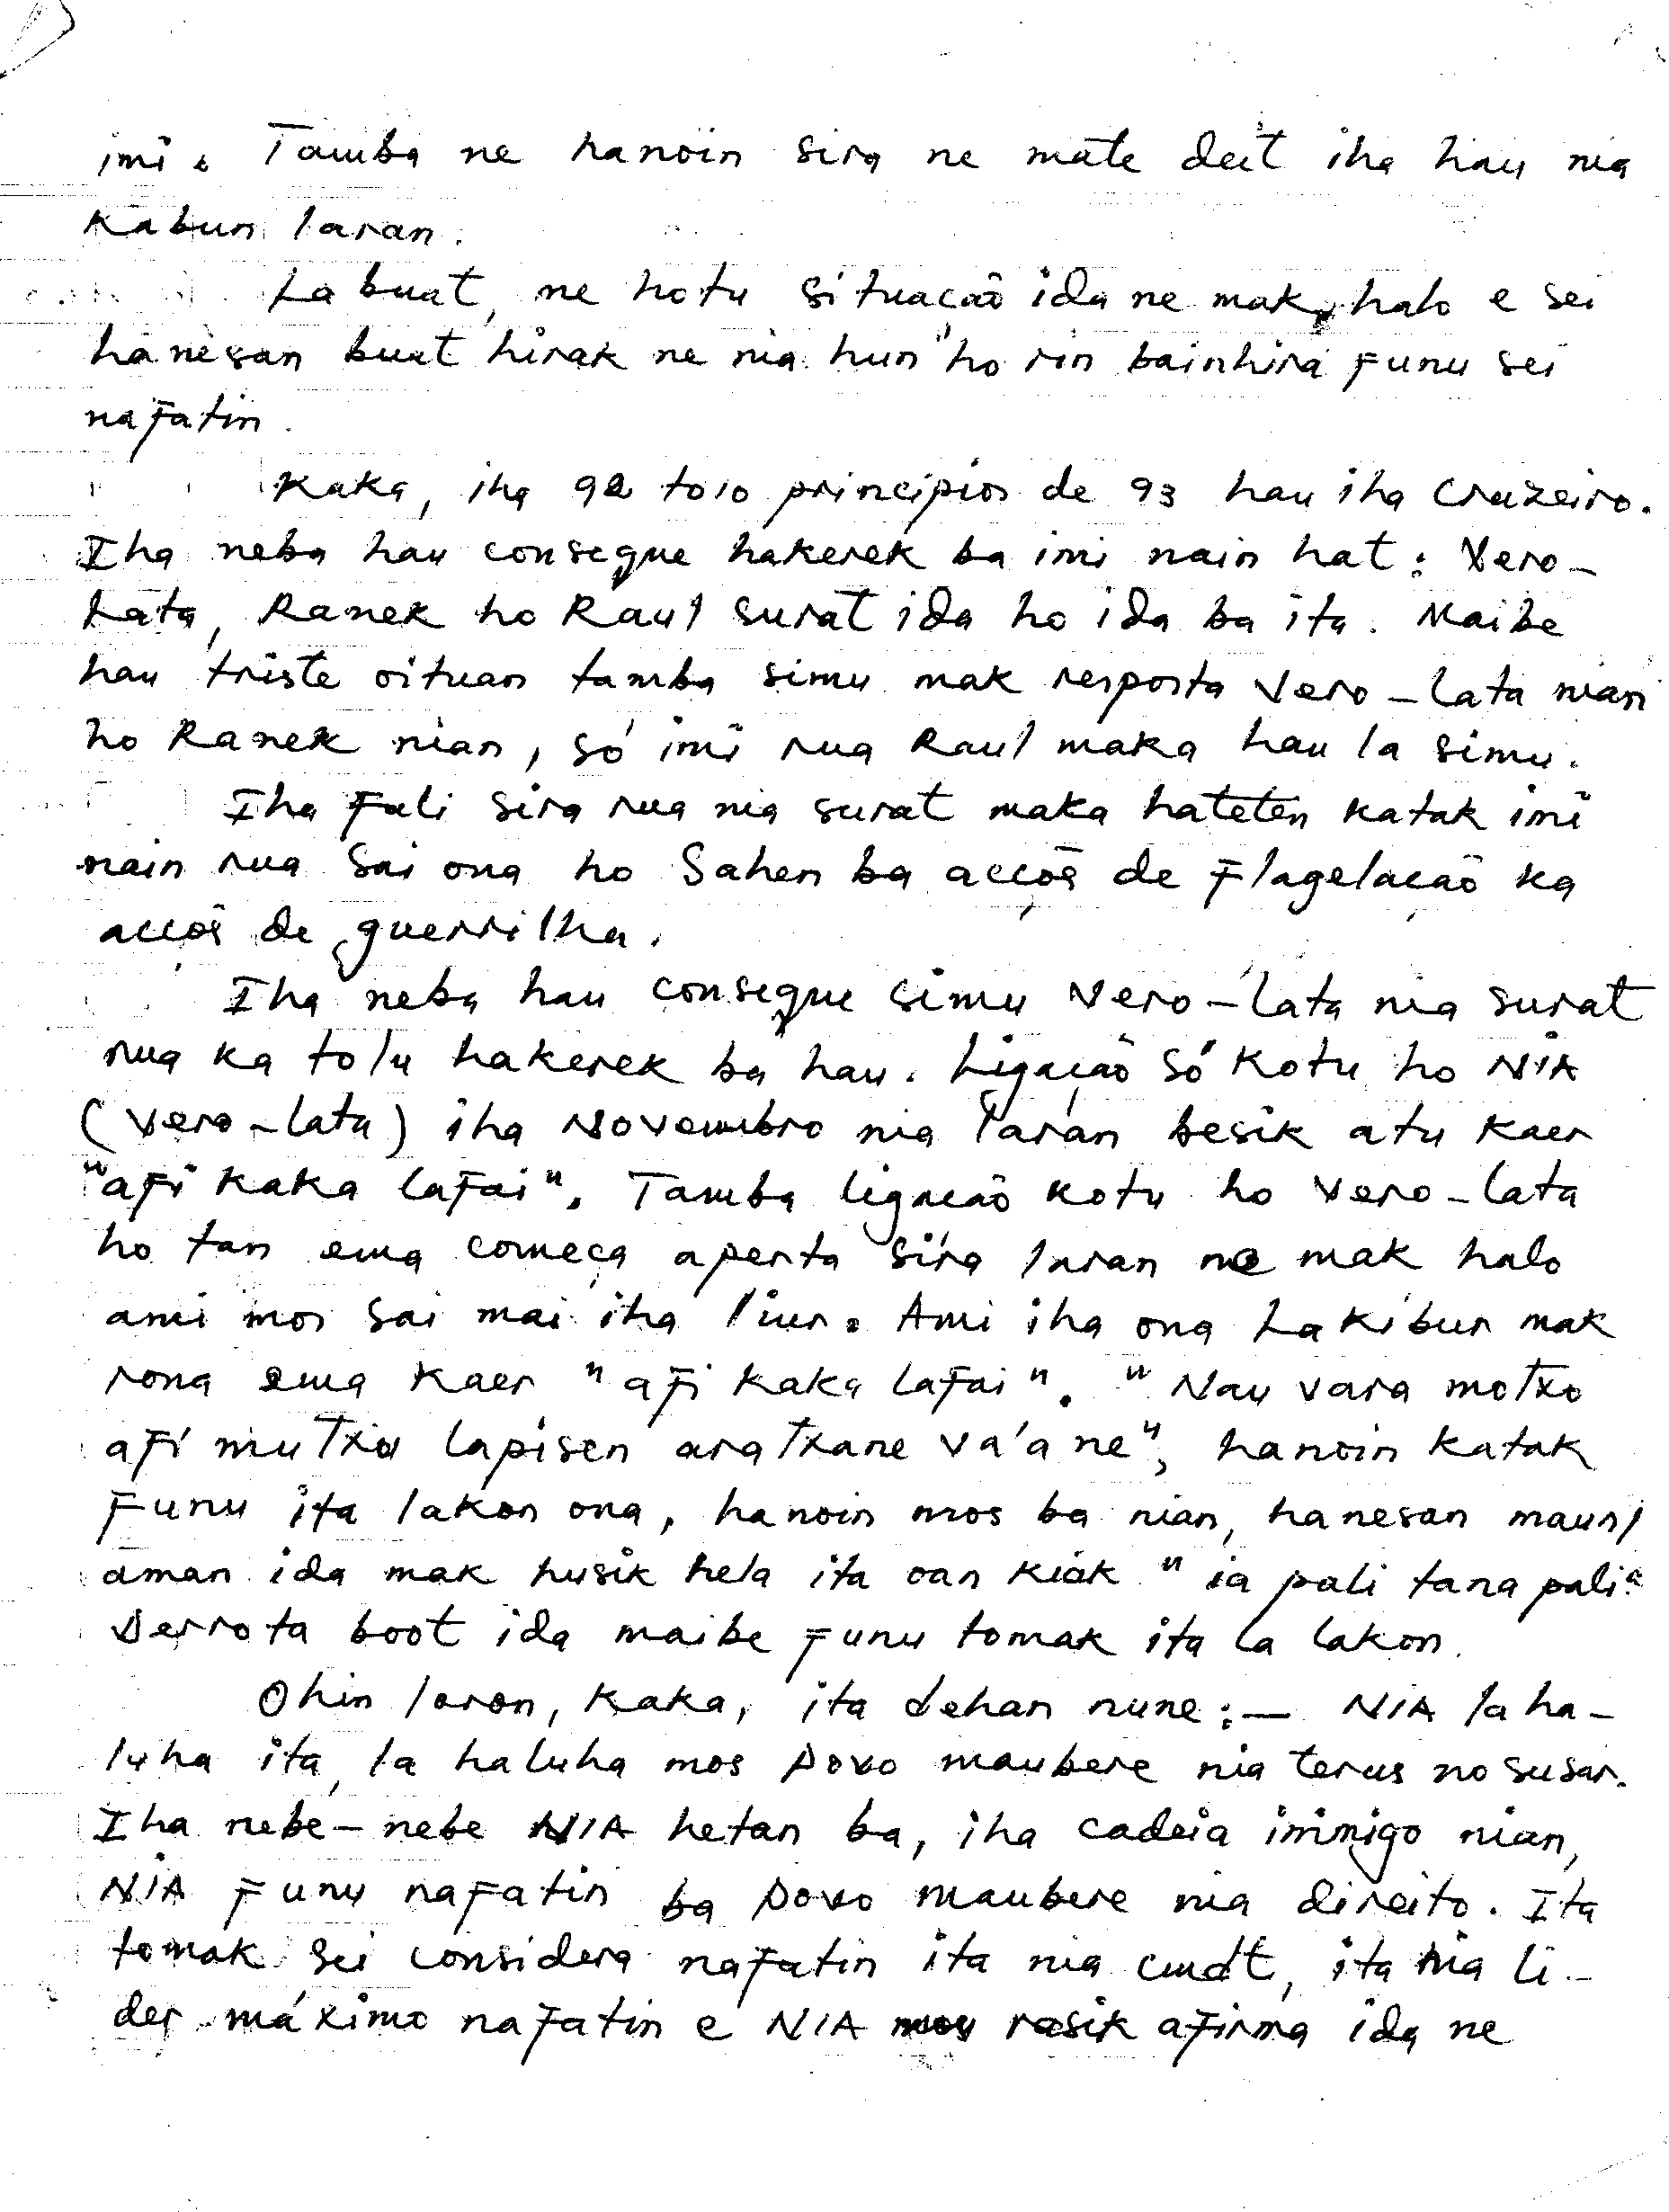 imi. Tamba ne hanoin sira ne mate deit iha hau nia
kabun laran.
La buat, ne hotu situação ida ne mak halo e sei
hanesan buat hirak ne nia hun ho rin bainhira funu sei
nafatin.
Kaka, iha 92 to'o principios de 93 hau iha Cruzeiro.
Iha neba hau consegue hakerek ba imi nain hat: Vero-
Lata, Ranek ho Raul surat ida ho ida ba ita. Maibe
hau triste oituan tamba simu mak resposta Vero-Lata nian
ho Ranek nian, só imi rua Raul maka hau la simu.
Iha fali sira rua nia surat maka hateten katak imi
nain rua sai ona ho Sahen ba acçõs de flagelação ka
acçõs de guerrilha.
Iha neba hau consegue simu Vero-Lata nia surat
rua ka tolu hakerek ba hau. Ligação só kotu ho NIA
(Vero-Lata) iha Novembro nia laran besik atu kaer
"afi kaka lafai". Tamba ligacão kotu ho Vero-Lata
ho tan ema começa aperta sira laran ne mak halo
ami mos sai mai iha liur. Ami iha ona Lakibur mak
rona ema kaer "afi kaka lafai". "Nau vara motxo
afi mutxu lapisen aratxane va'a ne", hanoin katak
funu ita lakon ona, hanoin mos ba nian, hanesan maun/
aman ida mak husik hela ita oan kiak "ia pali tana pali"
Derrota boot ida maibe funu tomak ita la lakon.
Ohin loron, Kaka, ita dehan nune:— NIA la ha-
luha ita, la haluha mos povo maubere nia terus no susar.
Iha nebe-nebe NIA hetan ba, iha cadeia inimigo nian,
NIA funu nafatin ba povo maubere nia direito. Ita
tomak sei considera nafatin ita nia cmdt, ita nia li-
der máximo nafatin e NIA mos rasik afirma ida ne